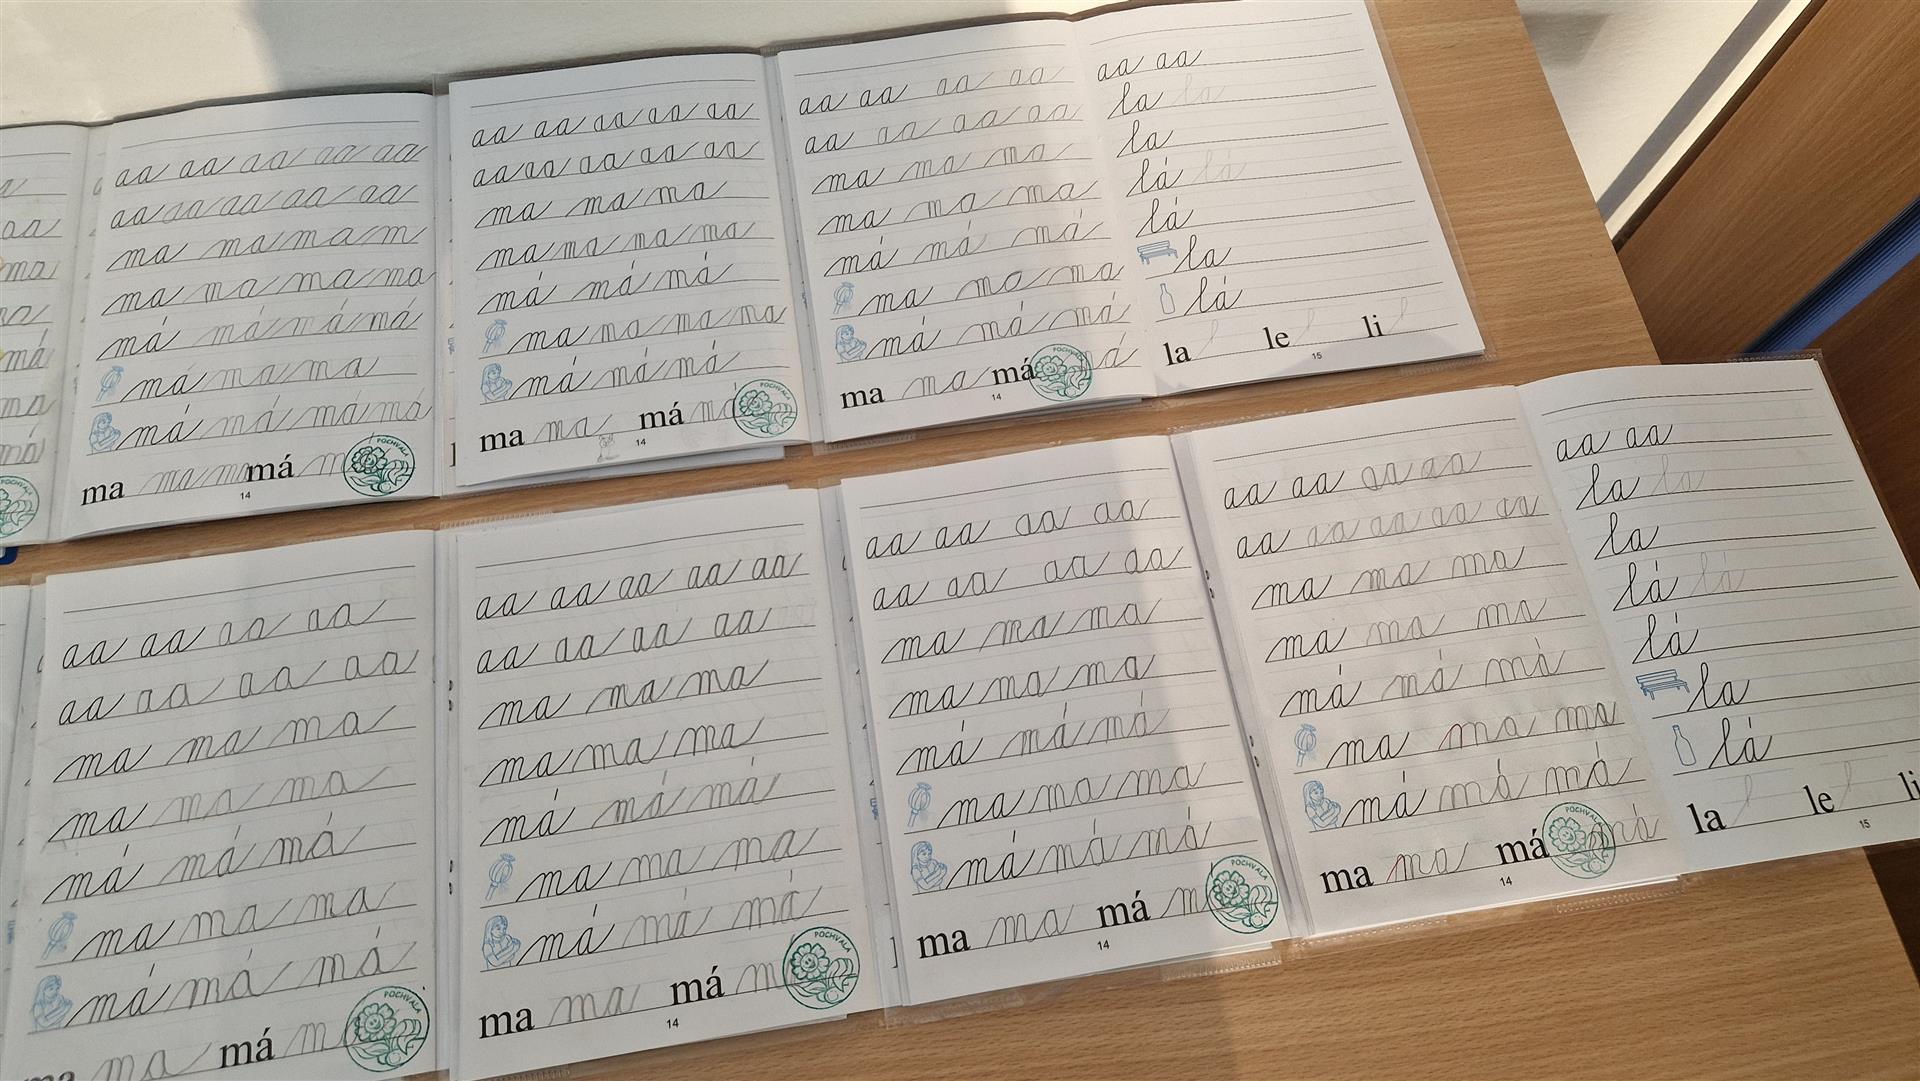 aa aa aa aa aa
aa aa aa aa aa
ma ma ma m
ma ma ma ma
má má má má
má ma ma ma
má má má má
ma ma ma má
14
POCHVALA
aa aa aa aa aa
aa aa aa aa aa
ma ma ma
ma ma ma ma
má má má
ma ma ma ma
má má má
ma ma má ma
14
POCHVALA
aa aa aa aa
aa aa aa aa
ma ma ma
ma ma ma
má má má
ma ma ma
má má má
ma ma má má
14
POCHVALA
aa aa
la la
la
lá lá
lá
la
lá
la l le l li l
15
aa aa aa aa
aa aa aa aa
ma ma ma
ma ma ma
má má má
ma ma ma
má má má
ma ma má
POCHVALA
aa aa aa aa aa
aa aa aa aa
ma ma ma
ma ma ma
má má má
ma ma ma
má má má
ma ma má
14
POCHVALA
aa aa aa aa
aa aa aa aa
ma ma ma
ma ma ma
má má má
ma ma ma
má má má
ma ma má
14
POCHVALA
aa aa aa aa
aa aa aa aa aa
ma ma ma
ma ma ma
má má má
ma ma ma
má má má
ma ma má má
14
POCHVALA
aa aa
la la
la
lá lá
lá
la
lá
la l le l li
15